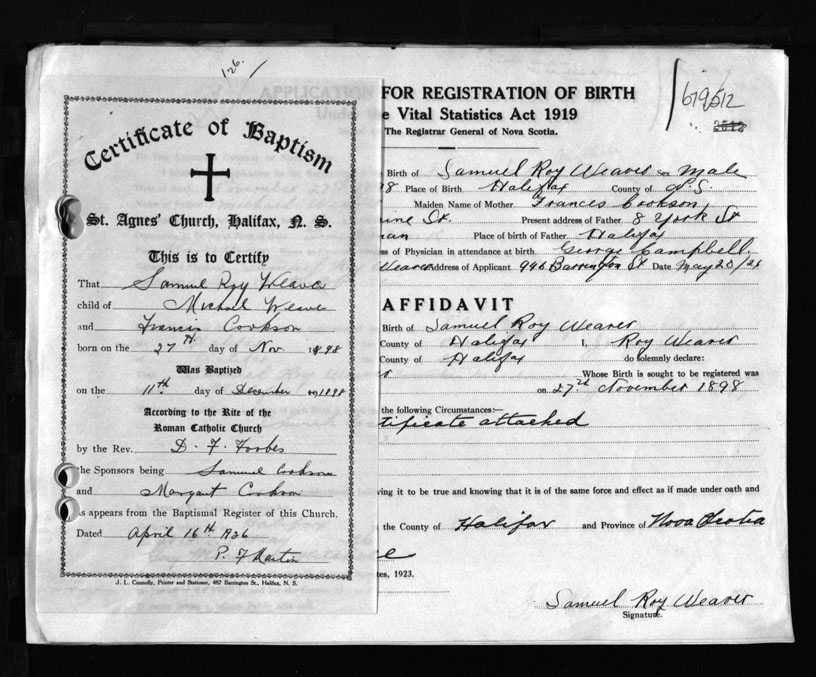 126.
Certificate of Baptism
St. Agnes' Church, Halifax, N. S.
This is to Certify
That Samuel Roy Weaver
child of Michael Weave
and Francis Cookson
born on the 27th day of Nov. 1898
Was Baptized
on the 11th day of December 1898
According to the Rite of the
Roman Catholic Church
by the Rev. D. F. Forbes
the Sponsors being Samuel Cookson
and Margaret Cookson
As appears from the Baptismal Register of this Church.
Dated April 16th 1936
P. F Martin
J. L. Connolly, Printer and Stationer, 487 Barrington St., Halifax, N. S.
APPLICATION FOR REGISTRATION OF BIRTH
Vital Statistics Act 1919
The Registrar General of Nova Scotia.
679512
Birth of Samuel Roy Weaver Sex Male
98 Place of Birth Halifax County of N.S.
Maiden Name of Mother Francis Cookson
St. Present address of Father 8 York St
Place of birth of Father Halifax
of Physician in attendance at birth George Campbell
Weaver Address of Applicant Barrington St Date May 20/
AFFIDAVIT
Birth of Samuel Roy Weaver
County of Halifax I, Roy Weaver
County of Halifax do solemnly declare:
Whose Birth is sought to be registered was
on 27th November 1898
the following Circumstances:—
tificate attached
ving it to be true and knowing that it is of the same force and effect as if made under oath and
the County of Halifax and Province of Nova Scotia
tes, 1923.
Samuel Roy Weaver
Signature.